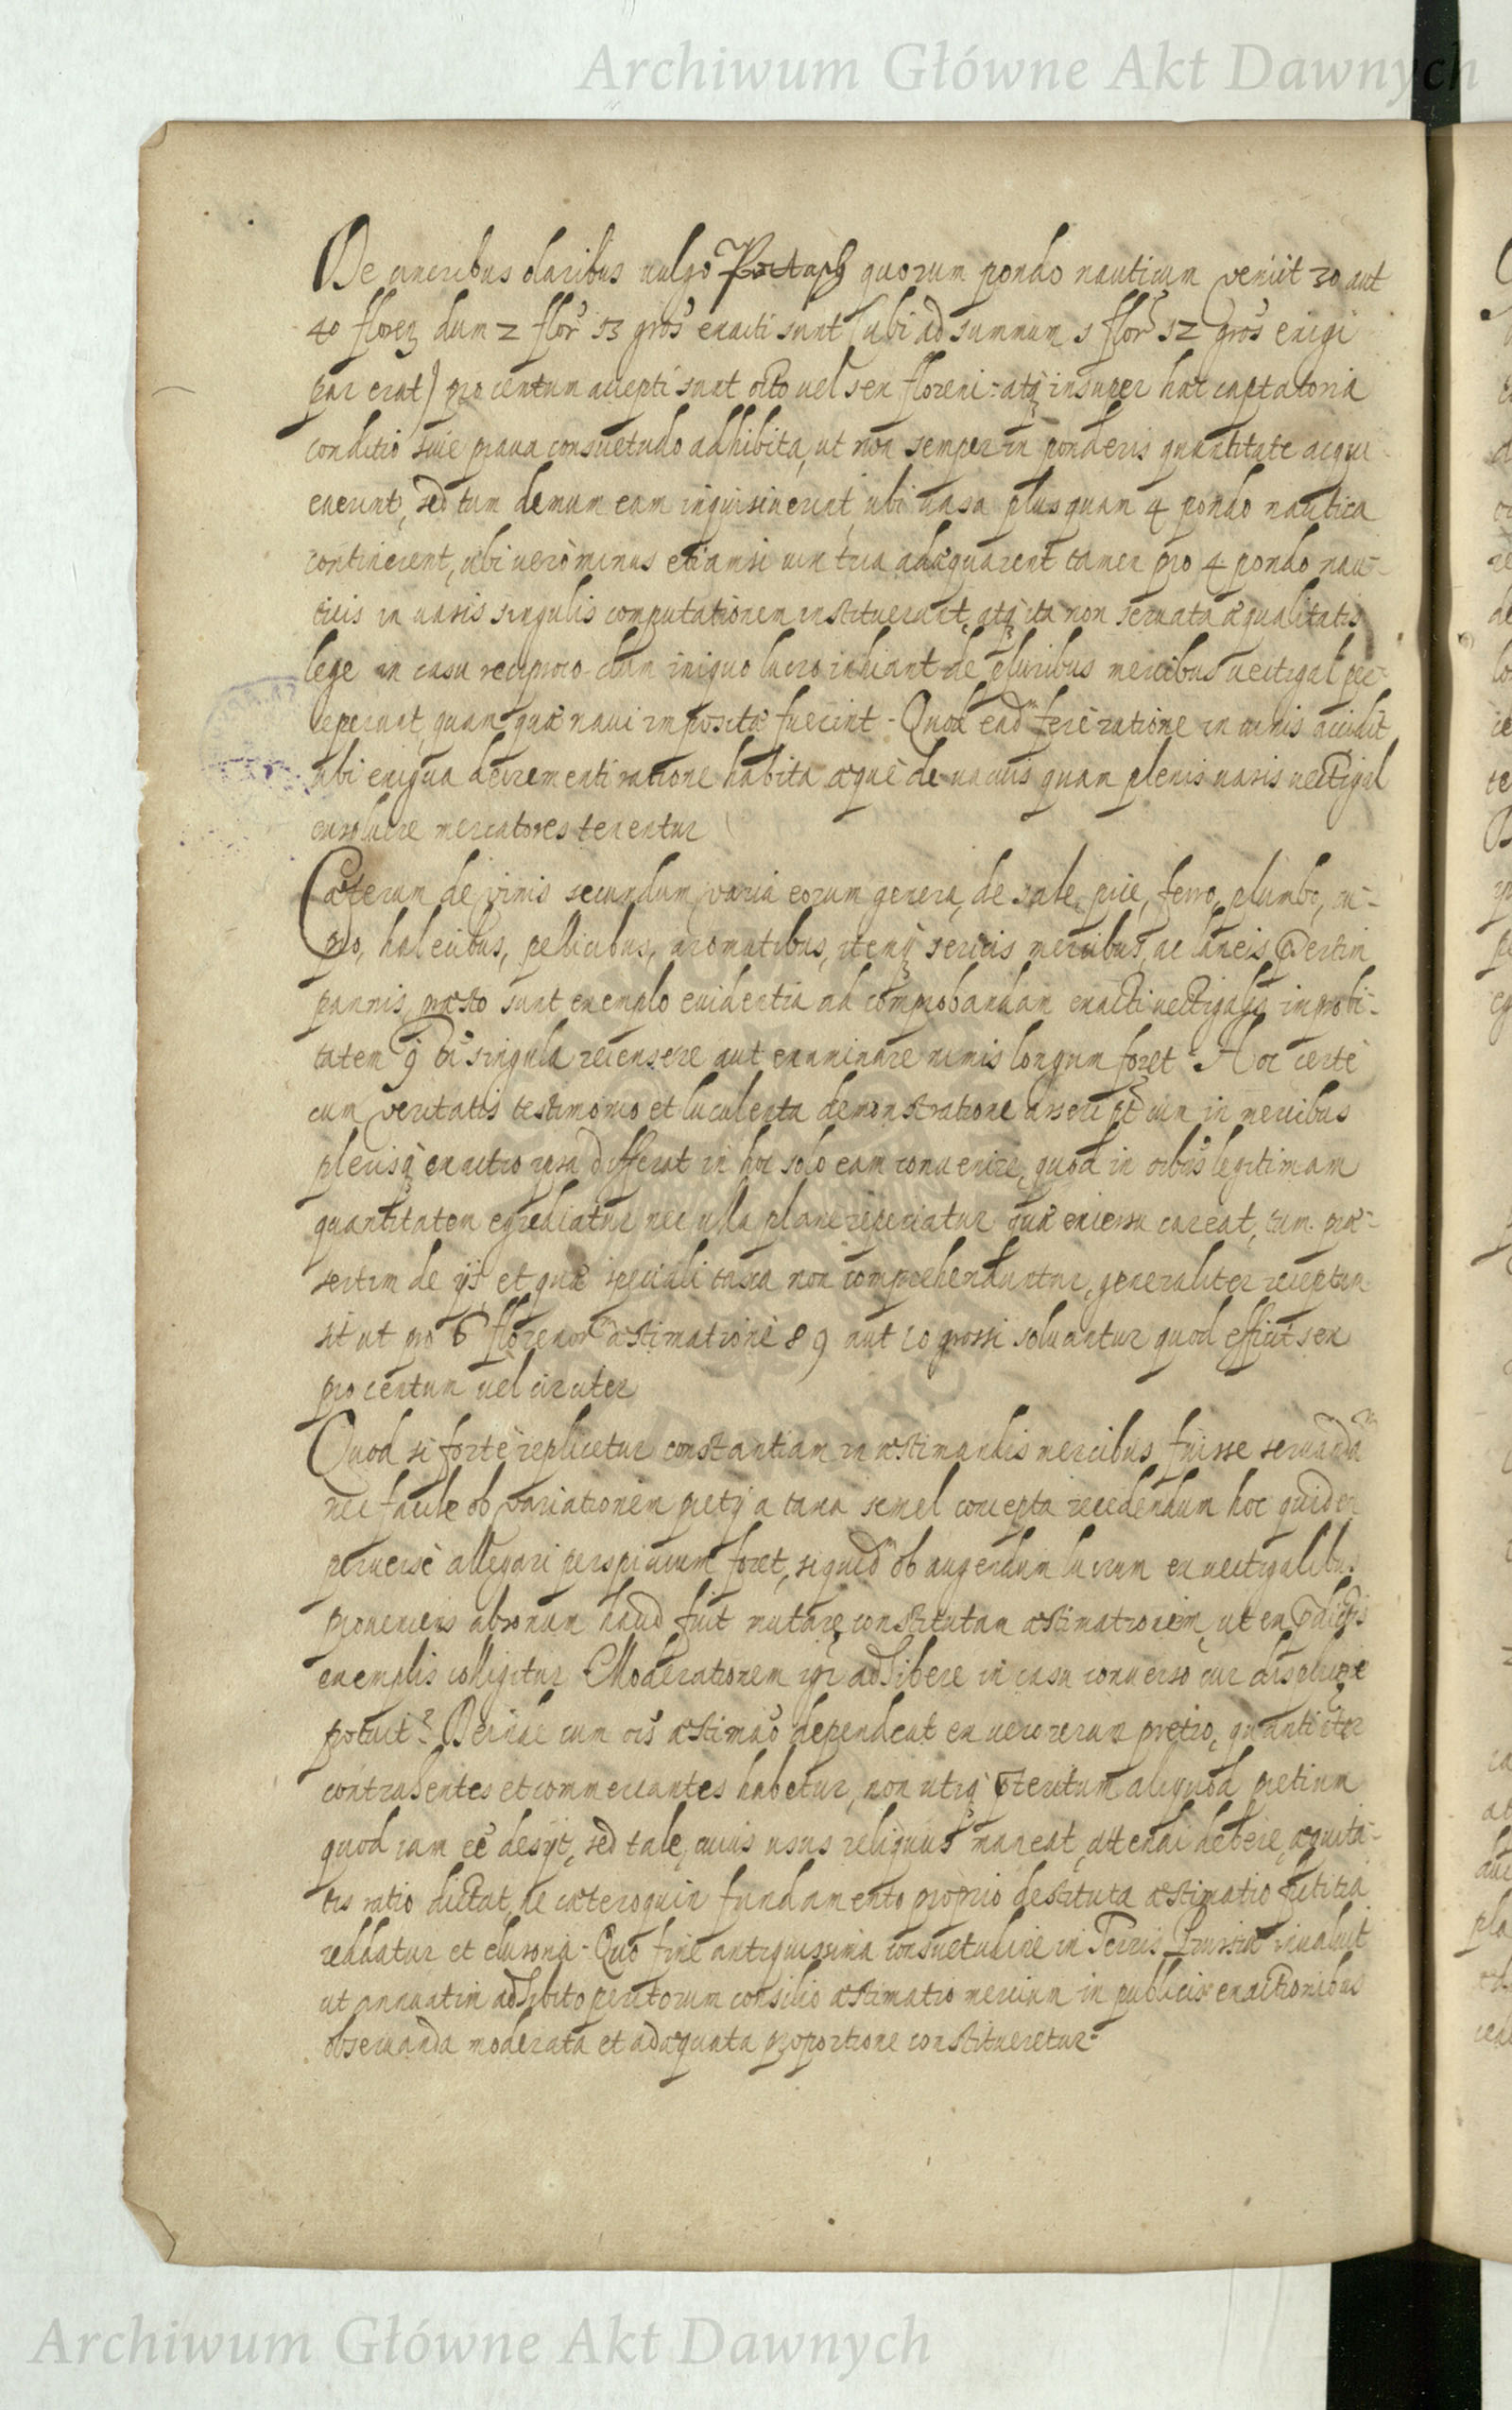 Archiwum Główne Akt Dawnych
De cineribus clavibus vulgo Pottasch quorum pondo nauticum veniit 30 aut
40 floren dum 2 flor 13 gros exacti sunt (ubi ad summum 1 flor 12 gros exigi
par erat) pro centum accepti sunt octo vel sex floreni: atq insuper hac captatoria
conditio sive prava consuetudo adhibita, ut non semper in ponderis quantitate acqui-
everint, sed tum demum eam inquisiverint, ubi vasa plus quam 4 pondo nautica
continerent, ubi verò minus etiamsi vix tria adæquarent tamen pro 4 pondo nau-
ticis in vasis singulis computationem instituerant, atq ita non servata æqualitatis
lege in casu reciproco dum iniquo lucro inhiant de pluribus mercibus vectigal per-
ceperunt, quam quæ navi impositæ fuerint. Quod ead fere ratione in vinis accidit
ubi exigua decrementi ratione habita æquè de vacuis quam plenis vasis vectigal
exsolvere mercatores tenentur
Cæterum de vinis secundum varia eorum genera, de sale, pice, ferro, plumbo, cu-
pro, halecibus, pellicibus, aromatibus, itemq sericis mercibus, ac laneis
pannis, præsto sunt exemplo evidentia ad comprobandam exacti vectigalis improbi-
tatem singula recensere aut examinare nimis longum foret. Hoc certè
cum veritatis testimonio et luculenta demonstratione asseri pt cum in mercibus
plerisq exactio ipsa differat in hoc solo eam convenire, quod in oibus legitimam
quantitatem egrediatur nec ulla plane reperiatur quæ excessu careat, cum præ-
sertim de ijs et quæ speciali taxa non comprehenduntur, generaliter receptum
sit ut pro 6 florenor æstimatione 8 9 aut 10 grossi solvantur quod efficit sex
pro centum vel circiter
Quod si fortè replicetur constantiam in æstimandis mercibus fuisse servandā
nec facile ob variationem pretij a taxa semel concepta recedendum hoc quidem
perversè allegari perspicuum foret, siquid ob augendum lucrum ex vectigalibus
proveniens absonum haud fuit mutare constitutam æstimationem, ut ex pdictis
exemplis colligitur. Moderationem igr adhibere in casu converso cur displicere
potuit? Deinde cum ois æstimaō dependeat ex vero rerum pretio, quanti inter
contrahentes et commercantes habetur, non utiq pteritum aliquod pretium
quod iam eē desijt, sed tale, cuius usus reliquus maneat, attendi debere, æquita-
tis ratio dictat, ne cæteroquin fundamento proprio destituta æstimatio fictitia
reddatur et elusoria. Quo fine antiquissima consuetudine in Terris Prussiæ invaluit
ut annuatim adhibito peritorum consilio æstimatio mercium in publicis exactionibus
observanda moderata et adæquata proportione constitueretur.
Archiwum Główne Akt Dawnych